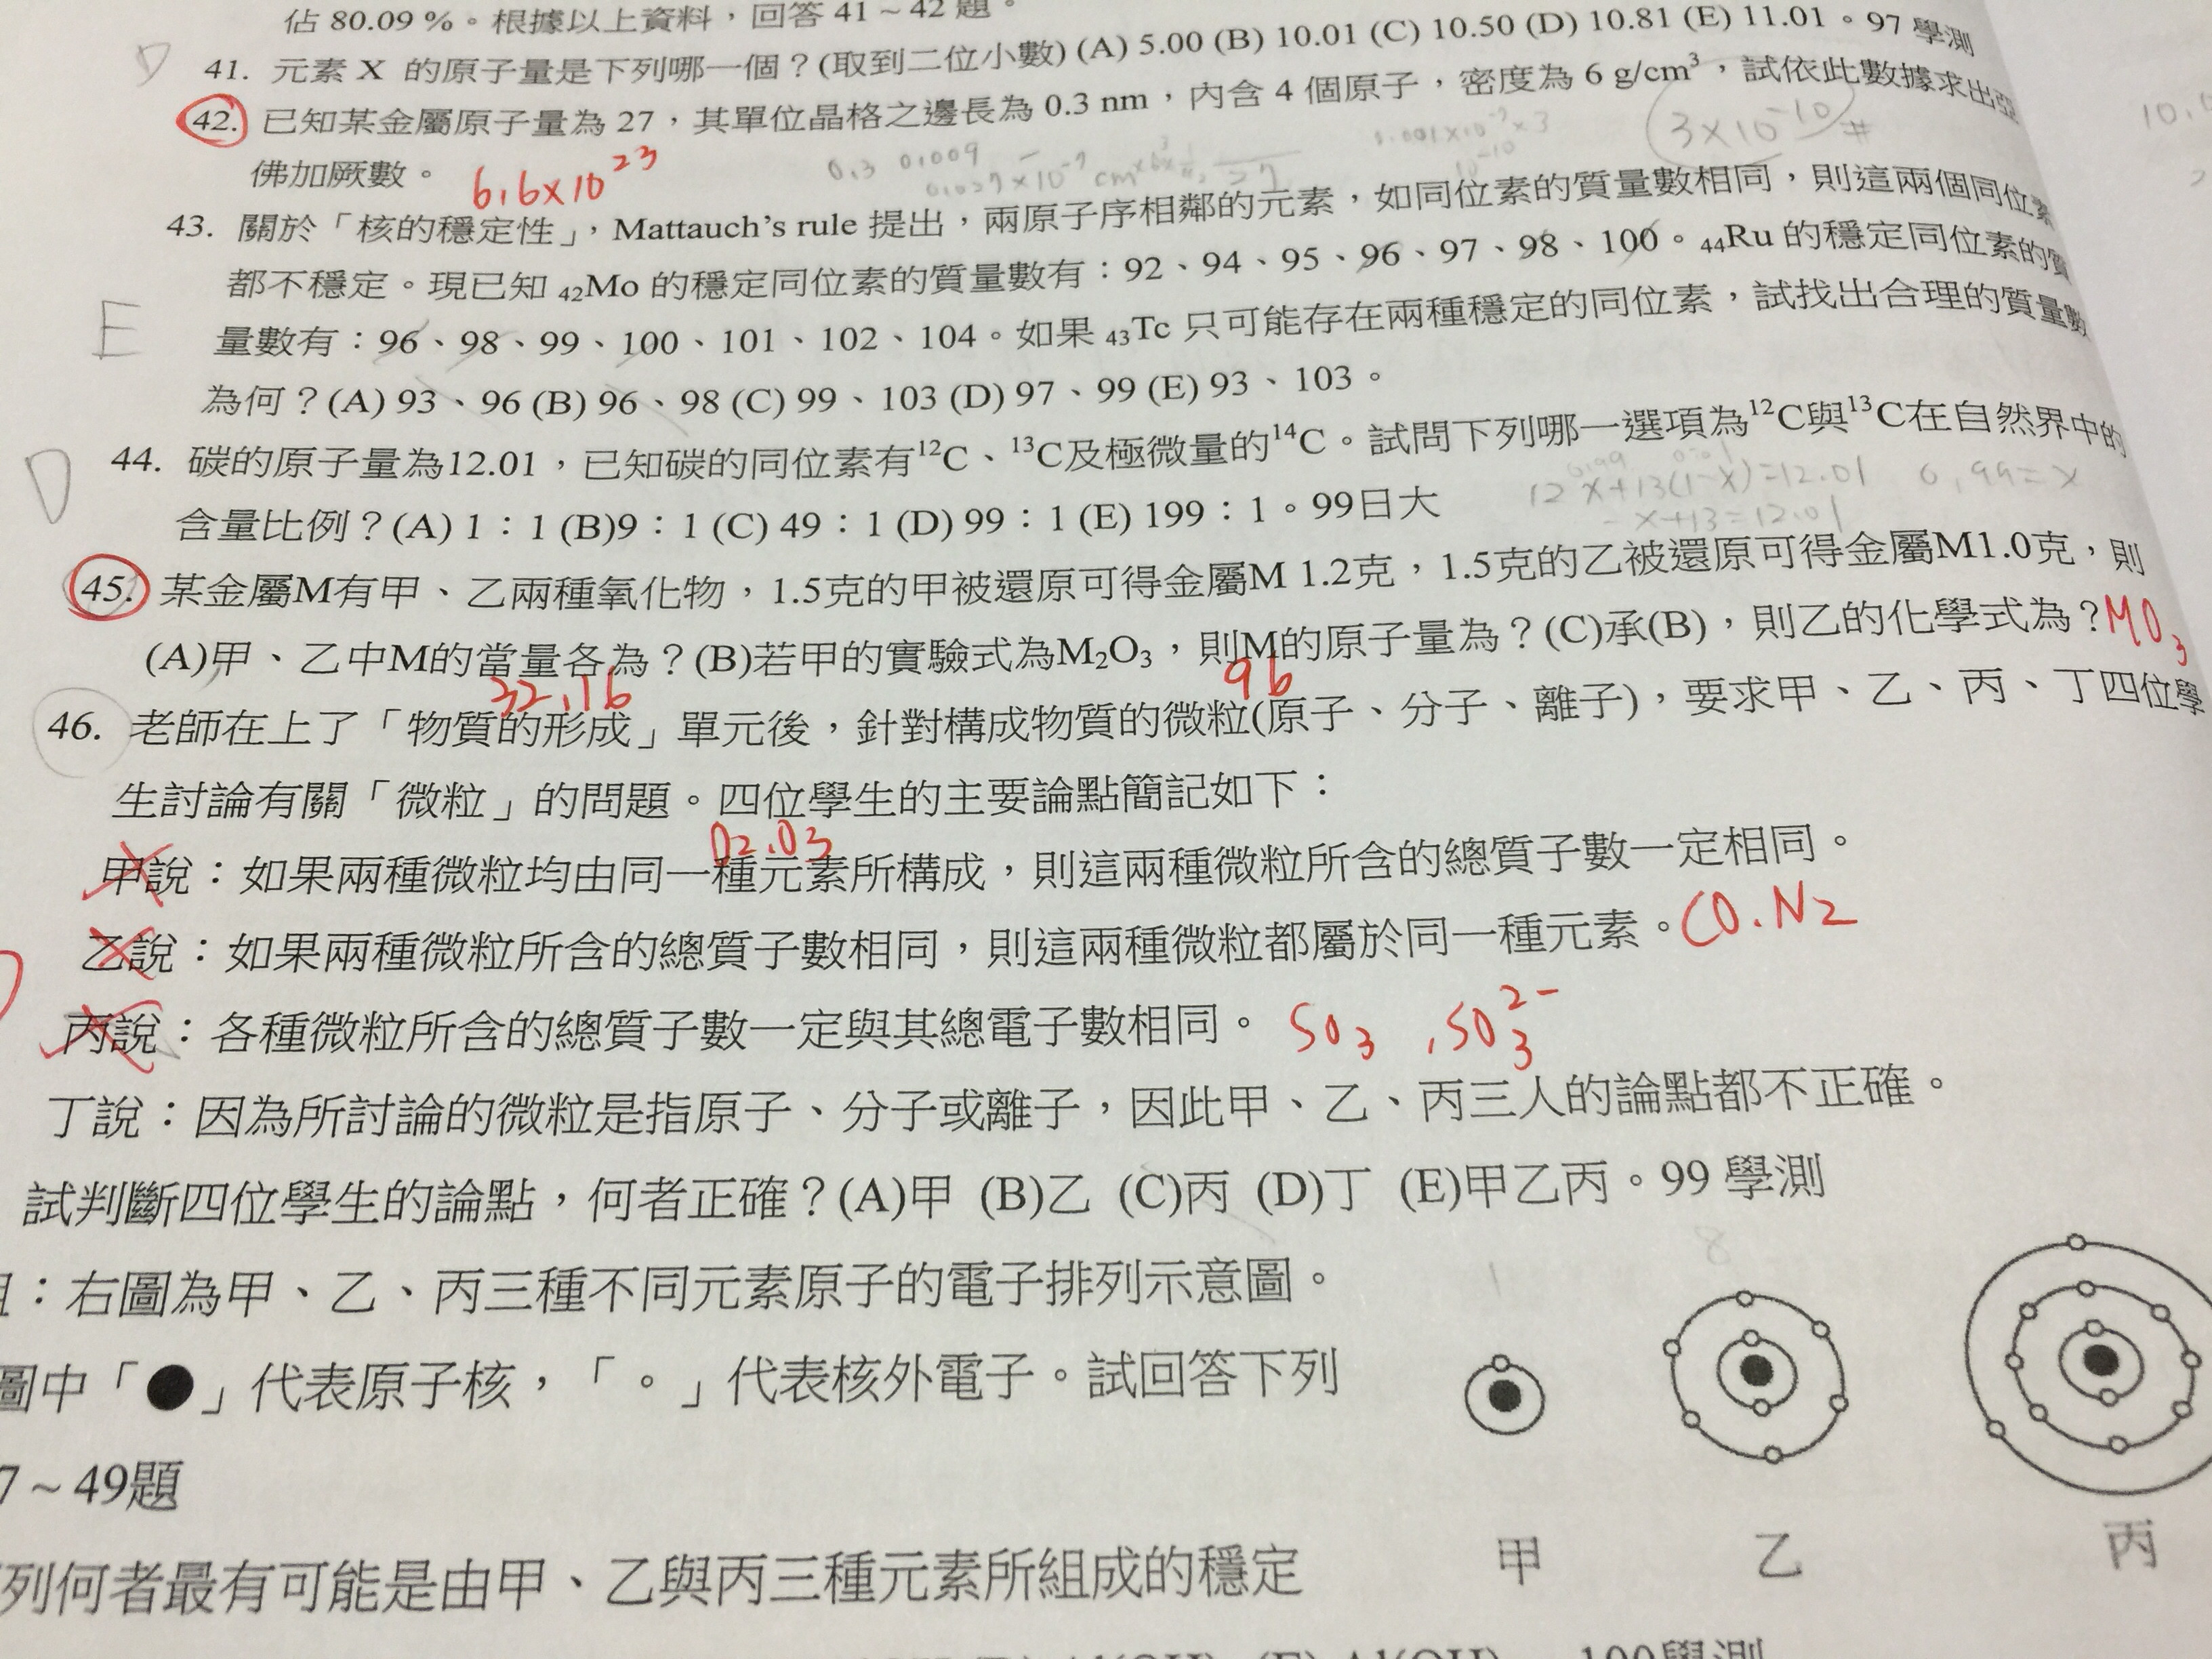 佔 80.09 %。根據以上資料，回答 41 ~ 42 題。
D
41. 元素 X 的原子量是下列哪一個？(取到二位小數) (A) 5.00 (B) 10.01 (C) 10.50 (D) 10.81 (E) 11.01。97 學測
42. 已知某金屬原子量為 27，其單位晶格之邊長為 0.3 nm，內含 4 個原子，密度為 6 g/cm³，試依此數據求出亞
佛加厥數。
6.6×10²³
3×10⁻¹⁰ #
43. 關於「核的穩定性」，Mattauch's rule 提出，兩原子序相鄰的元素，如同位素的質量數相同，則這兩個同位素
都不穩定。現已知 ₄₂Mo 的穩定同位素的質量數有：92、94、95、96、97、98、100。₄₄Ru 的穩定同位素的質
E
量數有：96、98、99、100、101、102、104。如果 ₄₃Tc 只可能存在兩種穩定的同位素，試找出合理的質量數
為何？(A) 93、96 (B) 96、98 (C) 99、103 (D) 97、99 (E) 93、103。
D
44. 碳的原子量為12.01，已知碳的同位素有¹²C、¹³C及極微量的¹⁴C。試問下列哪一選項為¹²C與¹³C在自然界中的
12x+13(1-x)=12.01 0.99=x
-x+13=12.01
含量比例？(A) 1：1 (B)9：1 (C) 49：1 (D) 99：1 (E) 199：1。99日大
45. 某金屬M有甲、乙兩種氧化物，1.5克的甲被還原可得金屬M 1.2克，1.5克的乙被還原可得金屬M1.0克，則
(A)甲、乙中M的當量各為？(B)若甲的實驗式為M₂O₃，則M的原子量為？(C)承(B)，則乙的化學式為？MO₃
32.16
96
46. 老師在上了「物質的形成」單元後，針對構成物質的微粒(原子、分子、離子)，要求甲、乙、丙、丁四位學
生討論有關「微粒」的問題。四位學生的主要論點簡記如下：
O₂.O₃
甲說：如果兩種微粒均由同一種元素所構成，則這兩種微粒所含的總質子數一定相同。
乙說：如果兩種微粒所含的總質子數相同，則這兩種微粒都屬於同一種元素。CO.N₂
丙說：各種微粒所含的總質子數一定與其總電子數相同。 SO₃ , SO₃²⁻
丁說：因為所討論的微粒是指原子、分子或離子，因此甲、乙、丙三人的論點都不正確。
試判斷四位學生的論點，何者正確？(A)甲 (B)乙 (C)丙 (D)丁 (E)甲乙丙。99 學測
：右圖為甲、乙、丙三種不同元素原子的電子排列示意圖。
1 8
圖中「●」代表原子核，「。」代表核外電子。試回答下列
7 ~ 49題
甲 乙 丙
列何者最有可能是由甲、乙與丙三種元素所組成的穩定
100學測